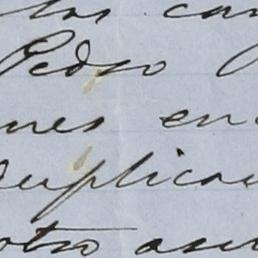 los can
Pedro
nes en
duplica
otro asun